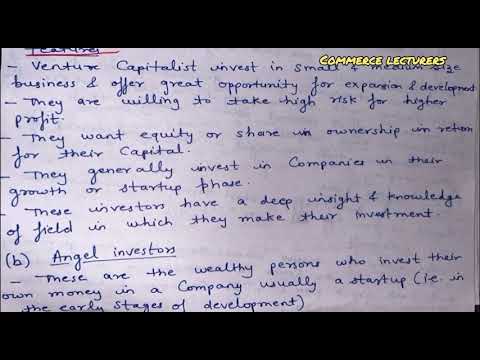 Features
COMMERCE LECTURERS
- Venture Capitalist invest in small & medium size
business & offer great opportunity for expansion & development
- They are willing to take high risk for higher
profit.
- They want equity or share in ownership in return
for their Capital.
- They generally invest in Companies in their
growth or startup phase.
- These investors have a deep insight & knowledge
of field in which they make their investment.
(b) Angel investors
- These are the wealthy persons who invest their
own money in a Company usually a startup (i.e. in
the early stages of development)